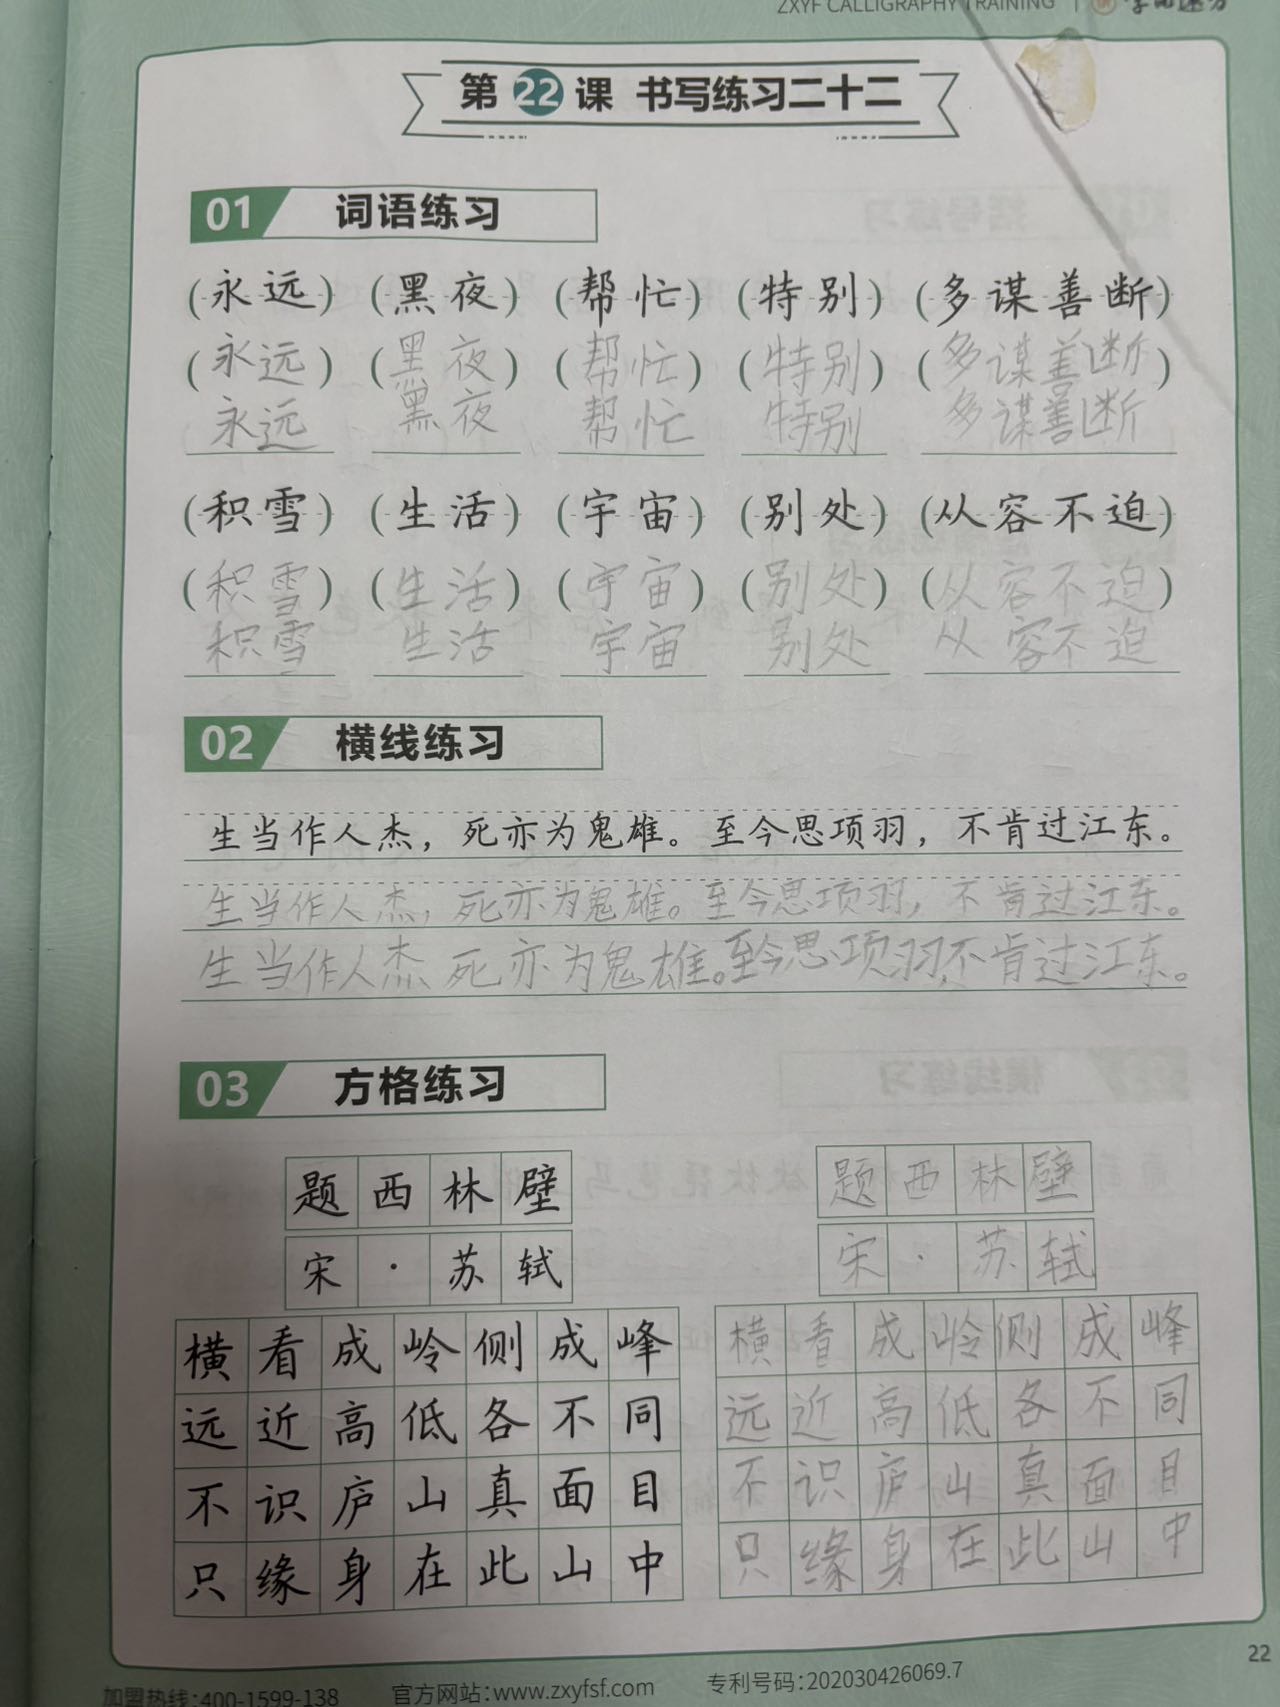 ZXYF CALLIGRAPHY TRAINING
第22课 书写练习二十二
01 词语练习
(永远) (黑夜) (帮忙) (特别) (多谋善断)
(永远) (黑夜) (帮忙) (特别) (多谋善断)
永远 黑夜 帮忙 特别 多谋善断
(积雪) (生活) (宇宙) (别处) (从容不迫)
(积雪) (生活) (宇宙) (别处) (从容不迫)
积雪 生活 宇宙 别处 从容不迫
02 横线练习
生当作人杰，死亦为鬼雄。至今思项羽，不肯过江东。
生当作人杰，死亦为鬼雄。至今思项羽，不肯过江东。
生当作人杰 死亦为鬼雄。至今思项羽，不肯过江东。
03 方格练习
题西林壁 题西林壁
宋·苏轼 宋·苏轼
横看成岭侧成峰 横看成岭侧成峰
远近高低各不同 远近高低各不同
不识庐山真面目 不识庐山真面目
只缘身在此山中 只缘身在此山中
22
加盟热线:400-1599-138 官方网站:www.zxyfsf.com 专利号码:202030426069.7